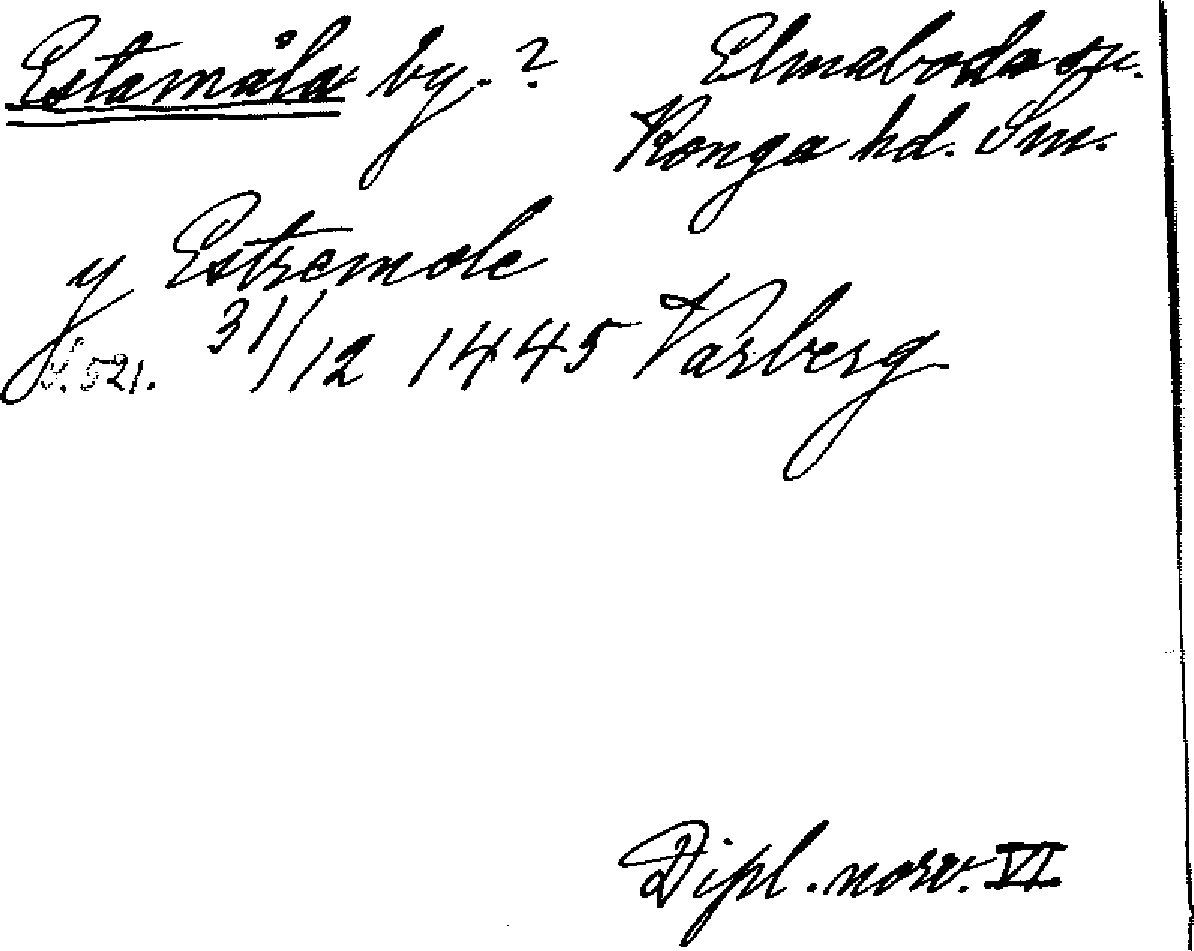 Estamåla by.? Elmeboda sn.
Konga hd. Sm.
y Estremole
S. 521. 31/12 1445 Varberg
Dipl. norv. VI.